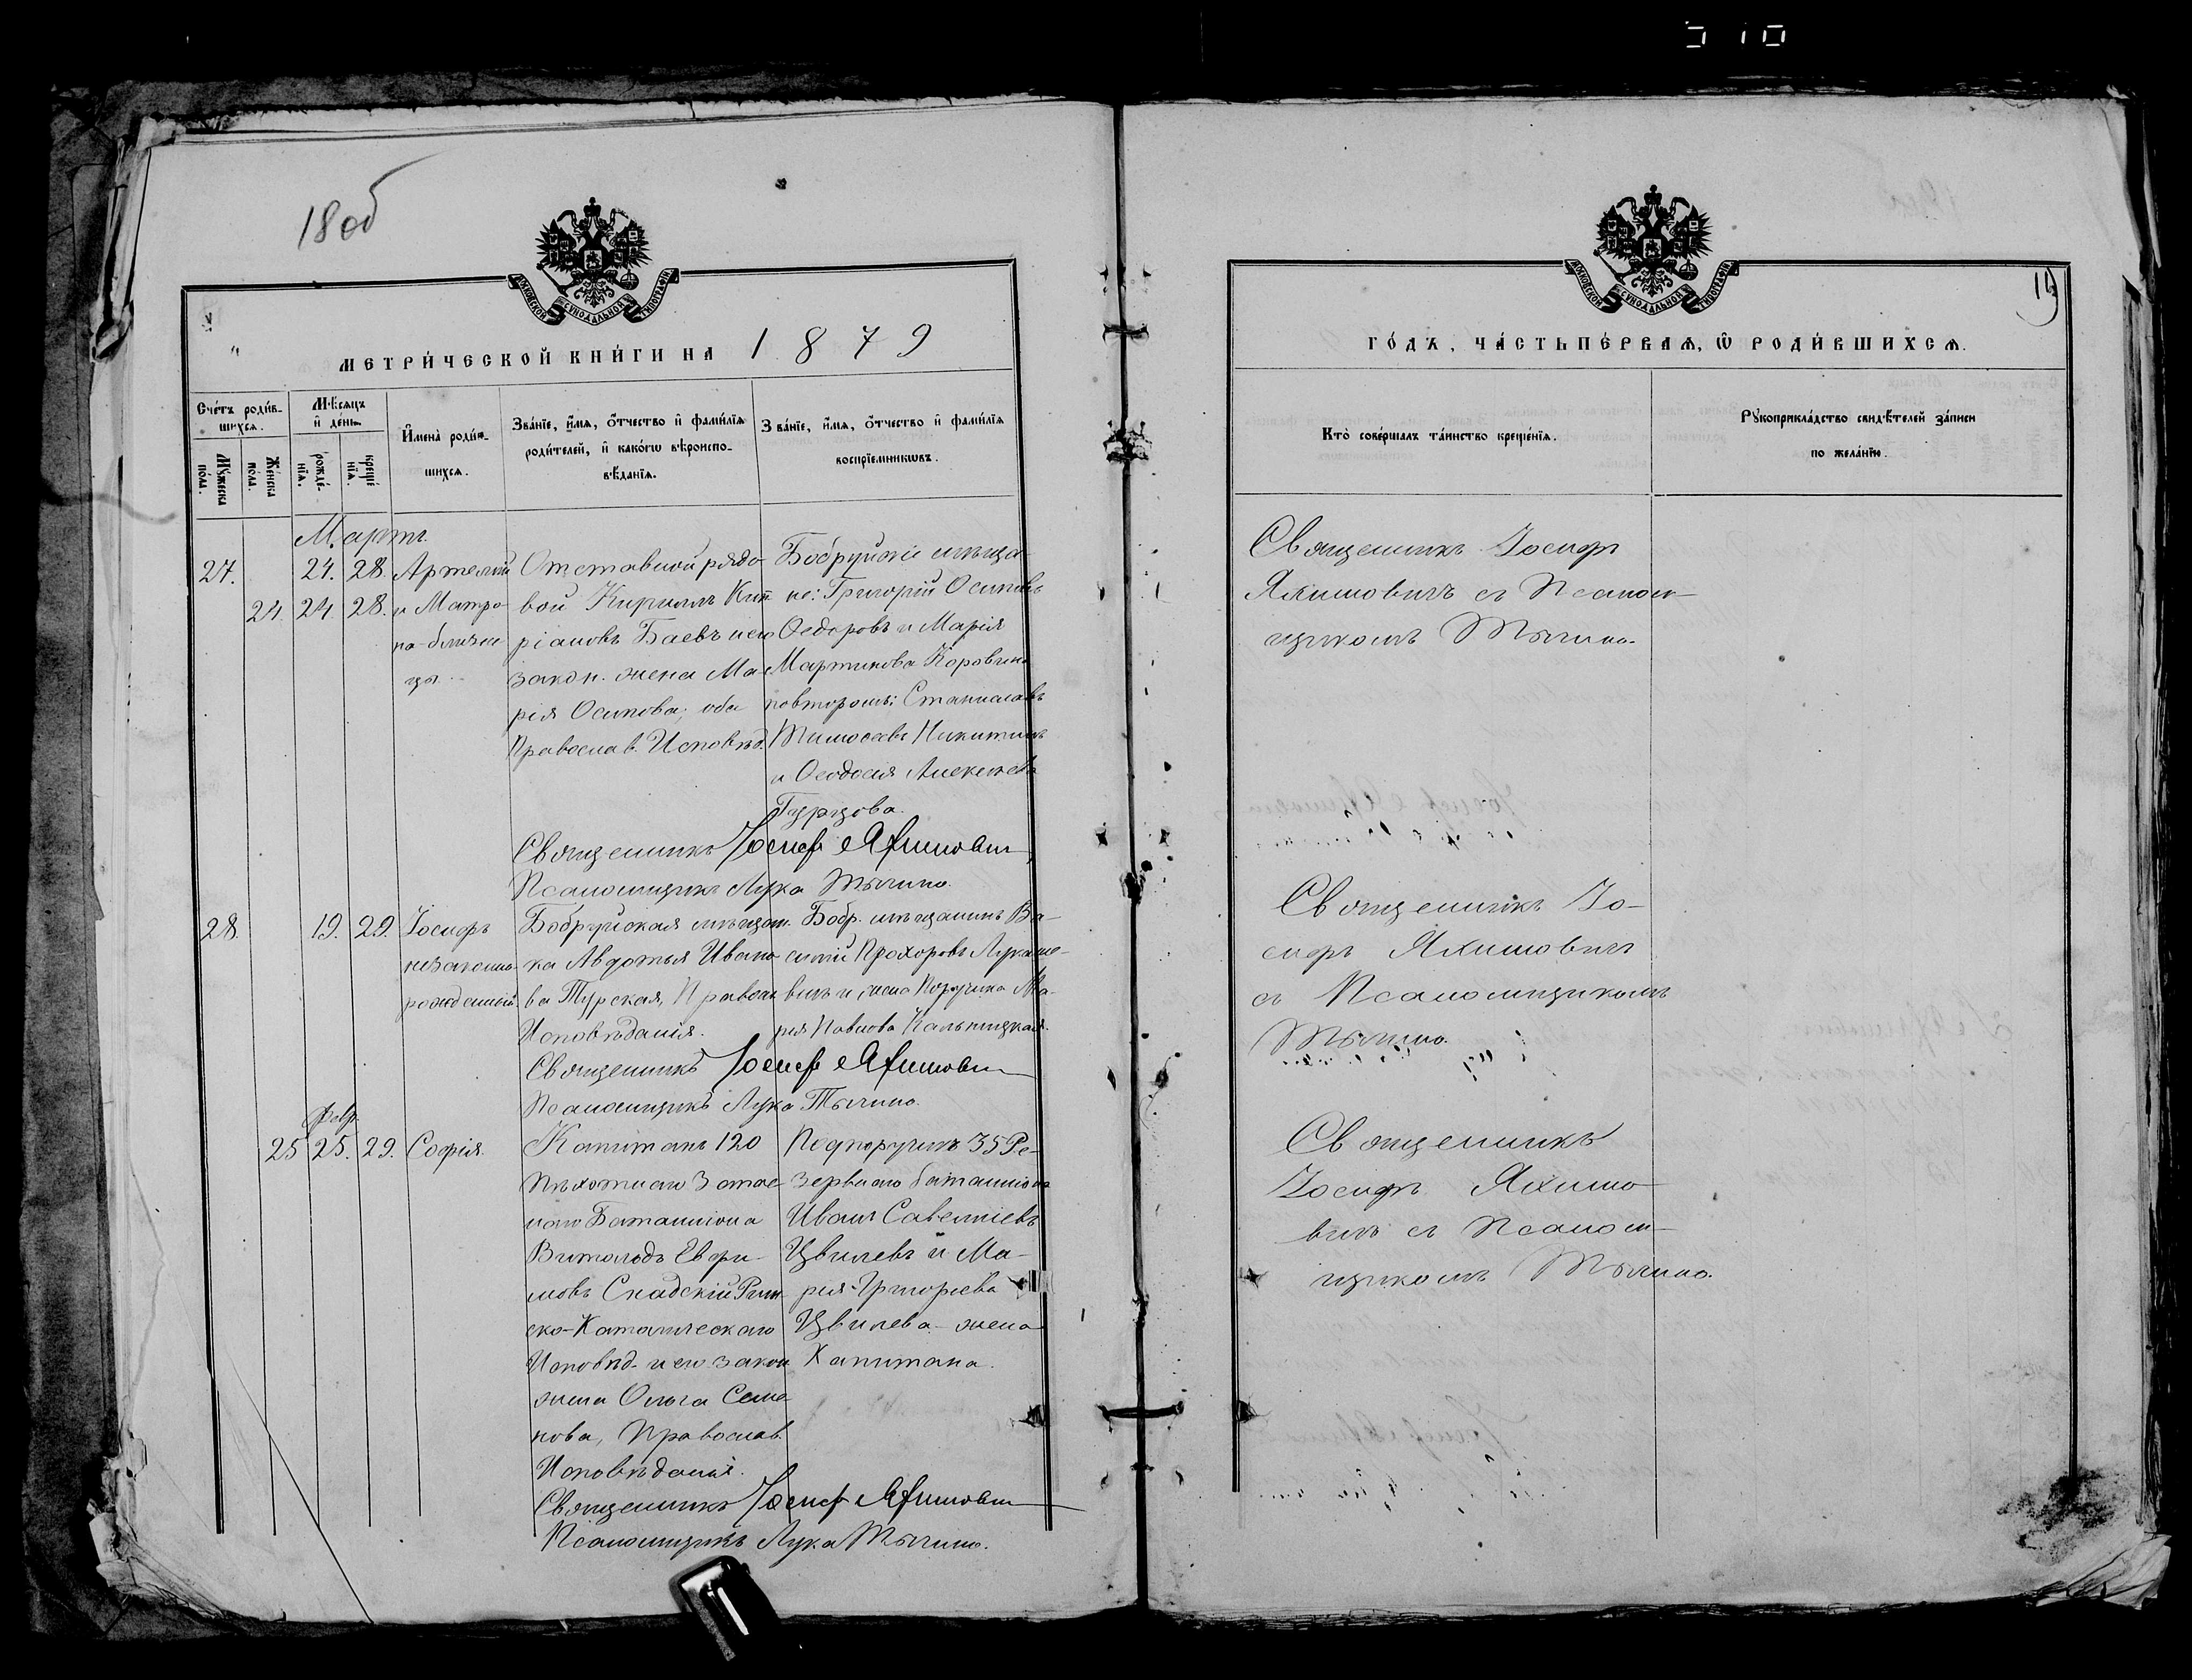 310
18 об
МОСКОВСКОЙ СѴНОДАЛЬНОЙ ТИПОГРАФІИ
МЕТРИ́ЧЕСКОЙ КНИ́ГИ НА 1879
Сче́тъ роди́вшихся.
Мѣ́сяцъ и҆ де́нь.
И҆мена̀ роди́вшихся.
Зва́нїе, и҆́мѧ, ѻ҆́тчество и҆ фами́лїѧ роди́телей, и҆ како́гѡ вѣроисповѣ́данїѧ.
Зва́нїе, и҆́мѧ, ѻ҆́тчество и҆ фами́лїѧ воспрїе́мникѡвъ.
Мꙋ́жеска по́ла.
Же́нска по́ла.
рожде́нїѧ.
креще́нїѧ.
Мартъ
27. 24. 28. Артемій
24. 24. 28. и Матро-
на - близне-
цы
Отставной рядо-
вой Кириллъ Кип-
ріановъ Баевъ и его
закон. жена Ма-
рія Осипова; оба
Православ. Исповѣд.
Бобруйскіе мѣща-
не: Григорій Осиповъ
Ѳедоровъ и Марія
Мартинова Коровкина
по второмъ: Станиславъ
Тимоѳеевъ Никитинъ
и Ѳеодосія Алексѣева
Священникъ Іосифъ Яхимовичъ
Псаломщикъ Лука Тычино.
28. 19. 29. Іосифъ
незаконно-
рожденный.
Бобруйская мѣщан-
ка Авдотья Ивано-
ва Турская, Правосл.
Исповѣданія.
Бобр. мѣщанинъ Ва-
силій Прохоровъ Лукаше-
вичъ и жена Поручика Ма-
рія Павлова
Священникъ Іосифъ Яхимовичъ
Псаломщикъ Лука Тычино.
Февр.
25 25. 29. Софія.
Капитанъ 120
Пѣхотнаго Запас-
наго Баталліона
Витольдъ Евфи-
мовъ Скадскій Рим-
ско-Католическаго
Исповѣд. и его закон
жена Ольга Семе-
нова, Православ.
Исповѣданія.
Подпоручикъ 35 Ре-
зервнаго баталліона
Иванъ Савельевъ
Цвилевъ и Ма-
рія Григорьева
Цвилева - жена
Капитана.
Священникъ Іосифъ Яхимовичъ
Псаломщикъ Лука Тычино.
МОСКОВСКОЙ СѴНОДАЛЬНОЙ ТИПОГРАФІИ
19
ГО́ДЪ, ЧА́СТЬ ПЕ́РВАѦ, Ѽ РОДИ́ВШИХСѦ.
Кто̀ соверша́лъ та́инство креще́нїѧ.
Рꙋкоприкла́дство свидѣ́телей за́писи по жела́нїю.
Священникъ Іосифъ
Яхимовичъ съ Псалом-
щикомъ Тычино.
Священникъ Іо-
сифъ Яхимовичъ
съ Псаломщикомъ
Тычино.
Священникъ
Іосифъ Яхимо-
вичъ съ Псалом-
щикомъ Тычино.